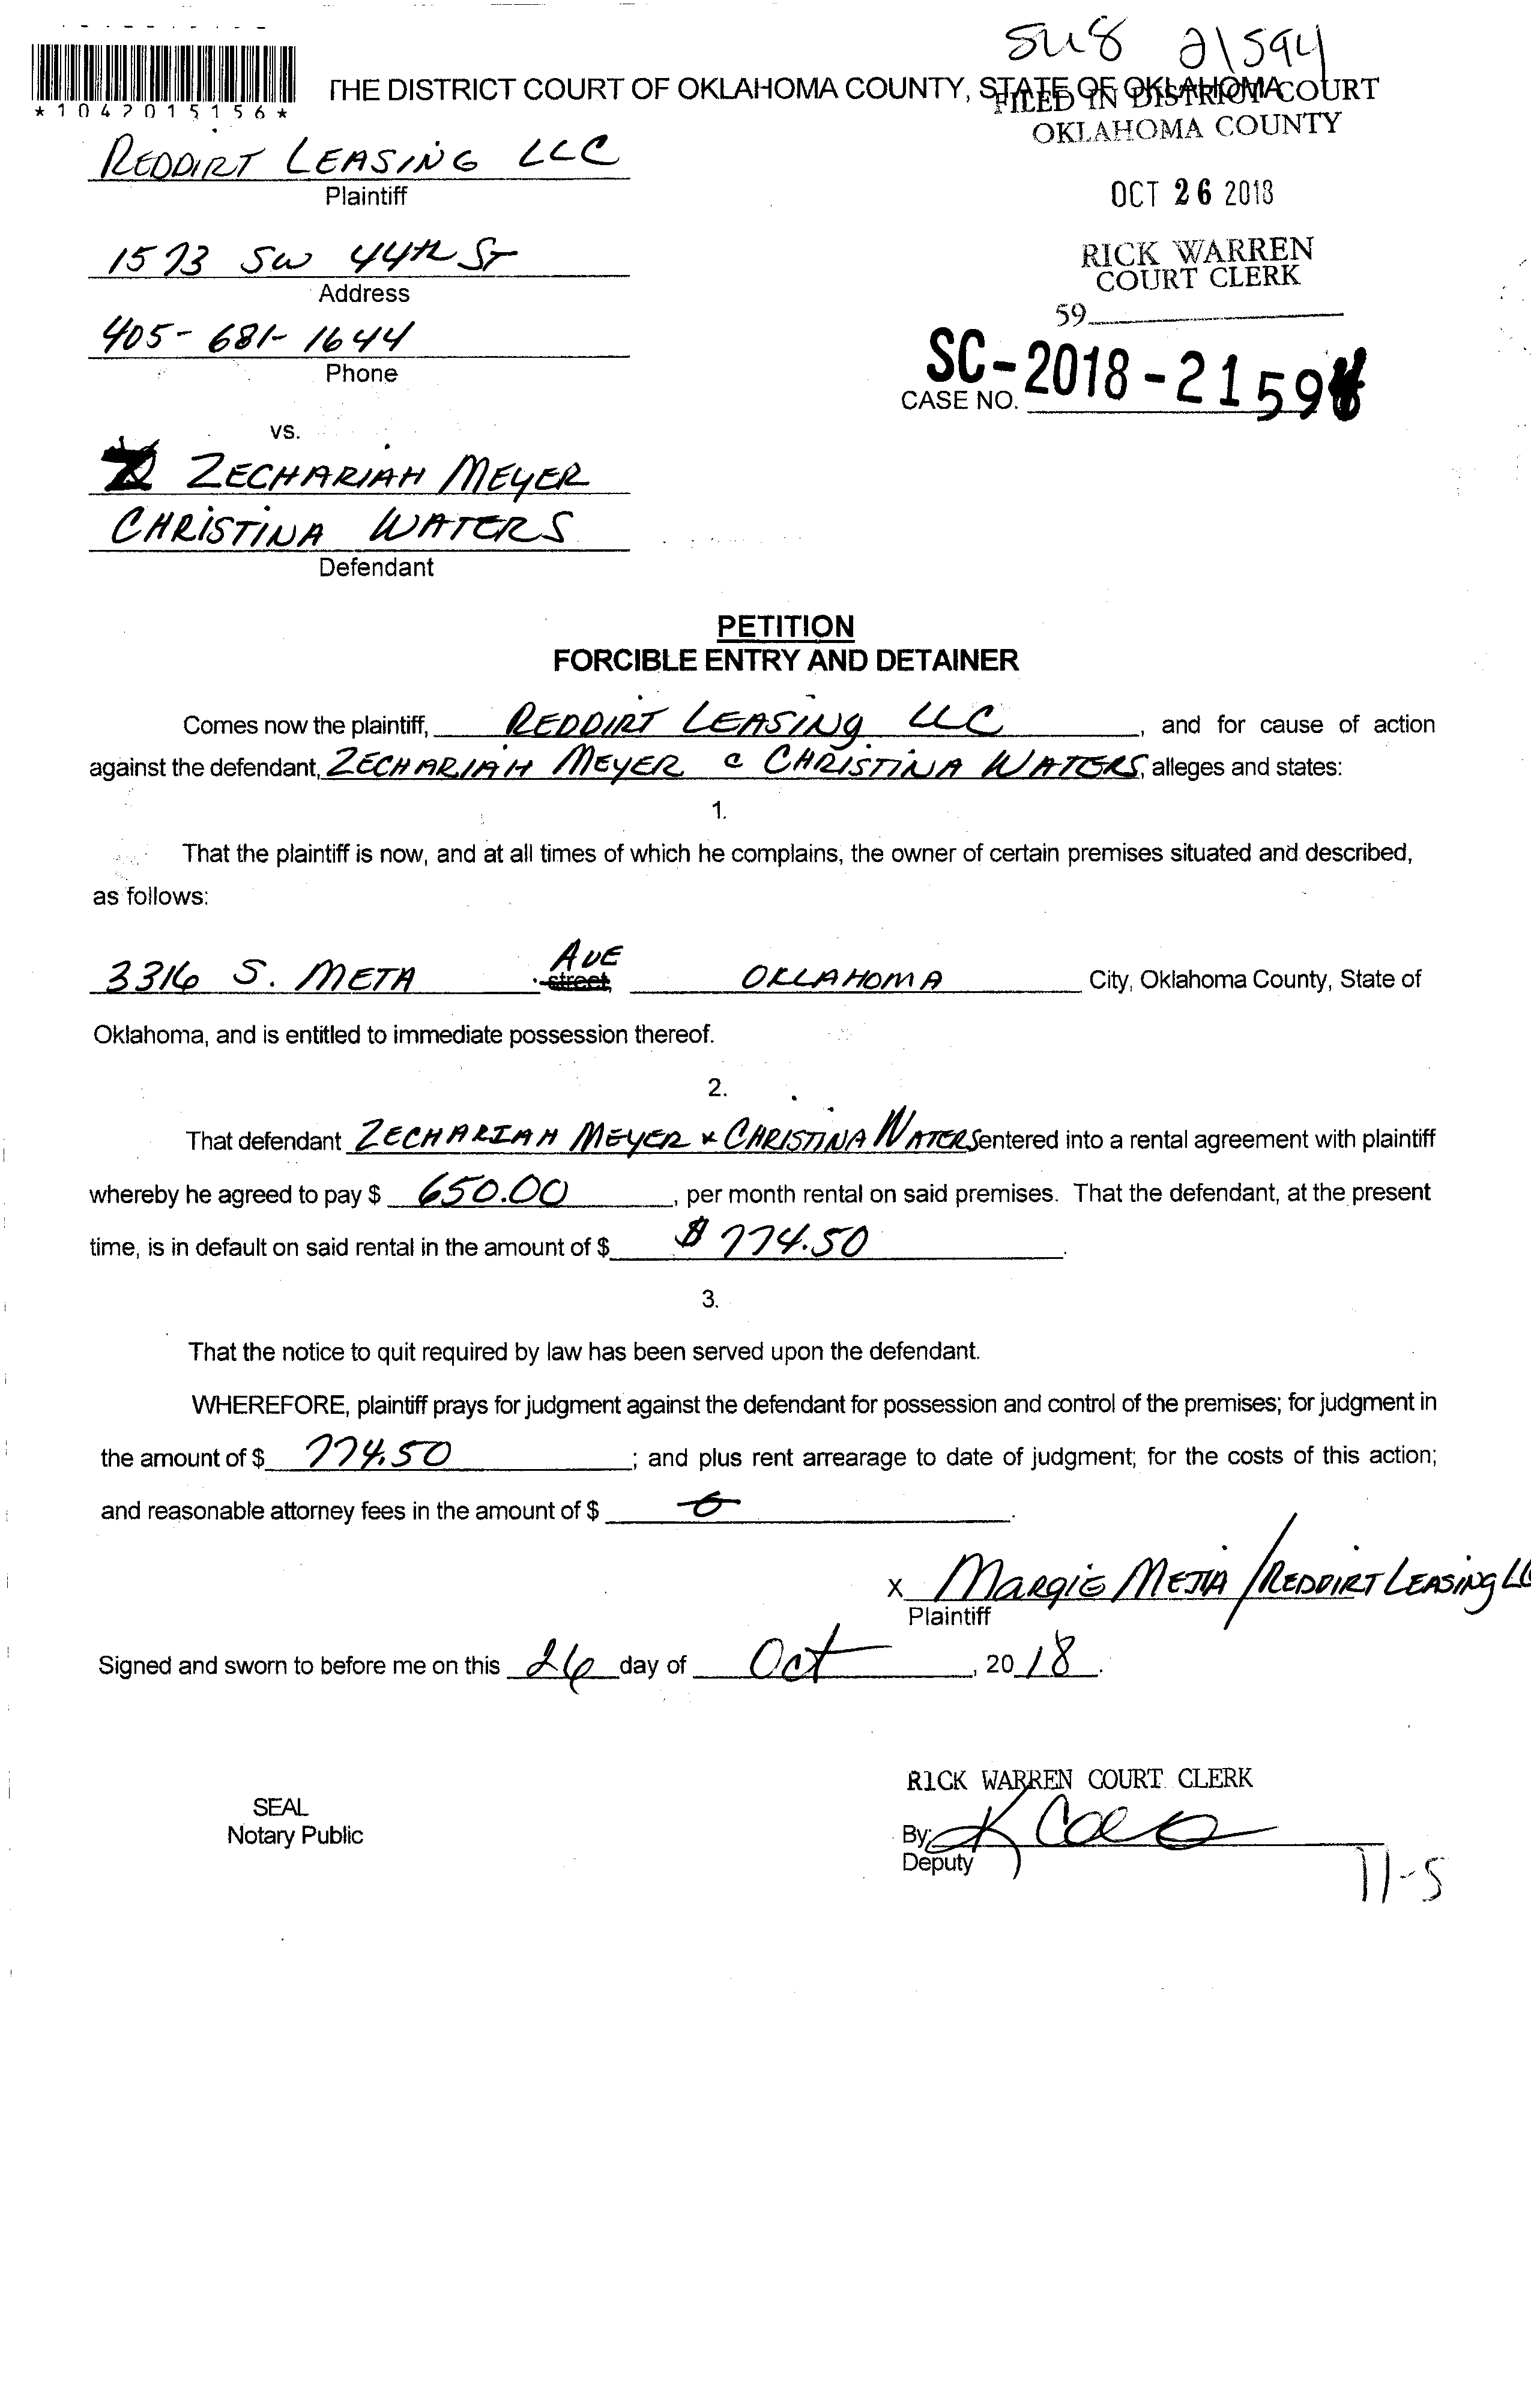 SU8 21594
*1042015156*
THE DISTRICT COURT OF OKLAHOMA COUNTY, STATE OF OKLAHOMA
FILED IN DISTRICT COURT
OKLAHOMA COUNTY
REDDIRT LEASING LLC
Plaintiff
OCT 26 2018
1573 SW 44th ST
Address
RICK WARREN
COURT CLERK
59
405-681-1644
Phone
SC-2018-21594
CASE NO.
vs.
ZECHARIAH MEYER
CHRISTINA WATERS
Defendant
PETITION
FORCIBLE ENTRY AND DETAINER
Comes now the plaintiff, REDDIRT LEASING LLC, and for cause of action
against the defendant, ZECHARIAH MEYER & CHRISTINA WATERS, alleges and states:
1.
That the plaintiff is now, and at all times of which he complains, the owner of certain premises situated and described,
as follows:
3316 S. META street, AVE OKLAHOMA City, Oklahoma County, State of
Oklahoma, and is entitled to immediate possession thereof.
2.
That defendant ZECHARIAH MEYER & CHRISTINA WATERS entered into a rental agreement with plaintiff
whereby he agreed to pay $ 650.00, per month rental on said premises. That the defendant, at the present
time, is in default on said rental in the amount of $ $774.50.
3.
That the notice to quit required by law has been served upon the defendant.
WHEREFORE, plaintiff prays for judgment against the defendant for possession and control of the premises; for judgment in
the amount of $ 774.50; and plus rent arrearage to date of judgment; for the costs of this action;
and reasonable attorney fees in the amount of $ 0.
X MARGIE MEJIA / REDDIRT LEASING LLC
Plaintiff
Signed and sworn to before me on this 26 day of Oct, 2018.
RICK WARREN COURT CLERK
SEAL
Notary Public
By: K
Deputy
11-5